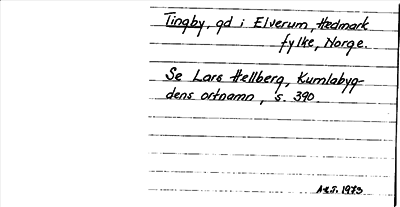 Tingby, gd i Elverum, Hedmark
fylke, Norge.
Se Lars Hellberg, Kumlabyg-
dens ortnamn, s. 390.
A.S.J. 1973